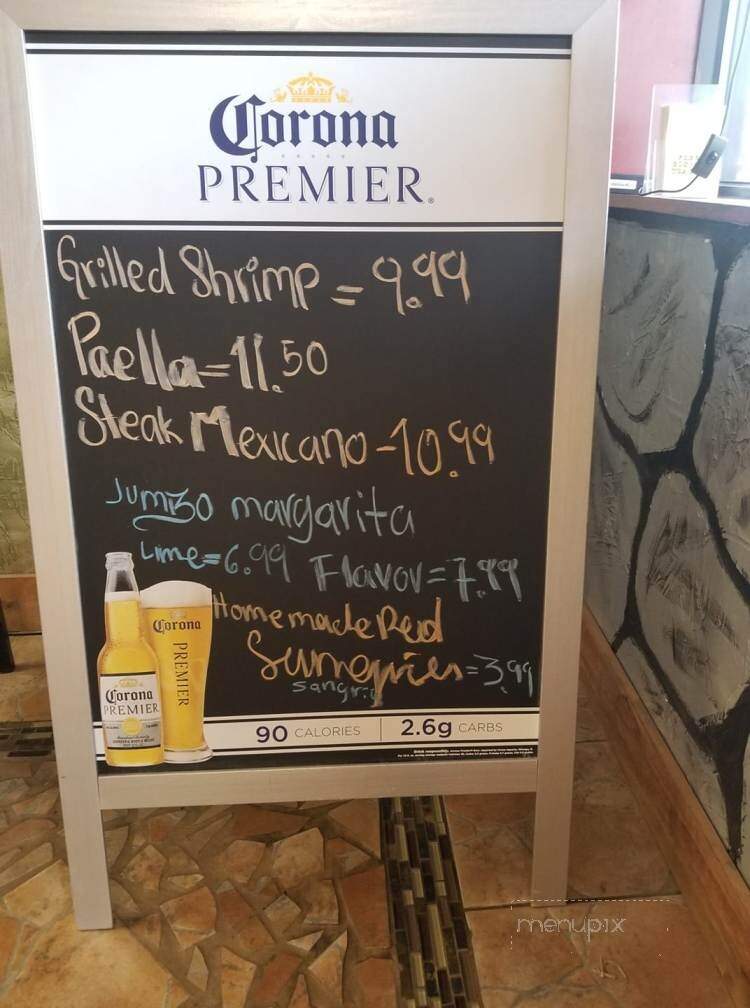 Corona
PREMIER.
Grilled Shrimp = 9.99
Paella = 11.50
Steak Mexicano - 10.99
Jumbo margarita
Lime = 6.99 Flavor = 7.99
Homemade Red
= 3.99
sangria
Corona
PREMIER
Corona
PREMIER
90 CALORIES 2.6g CARBS
Drink responsibly.
menupix